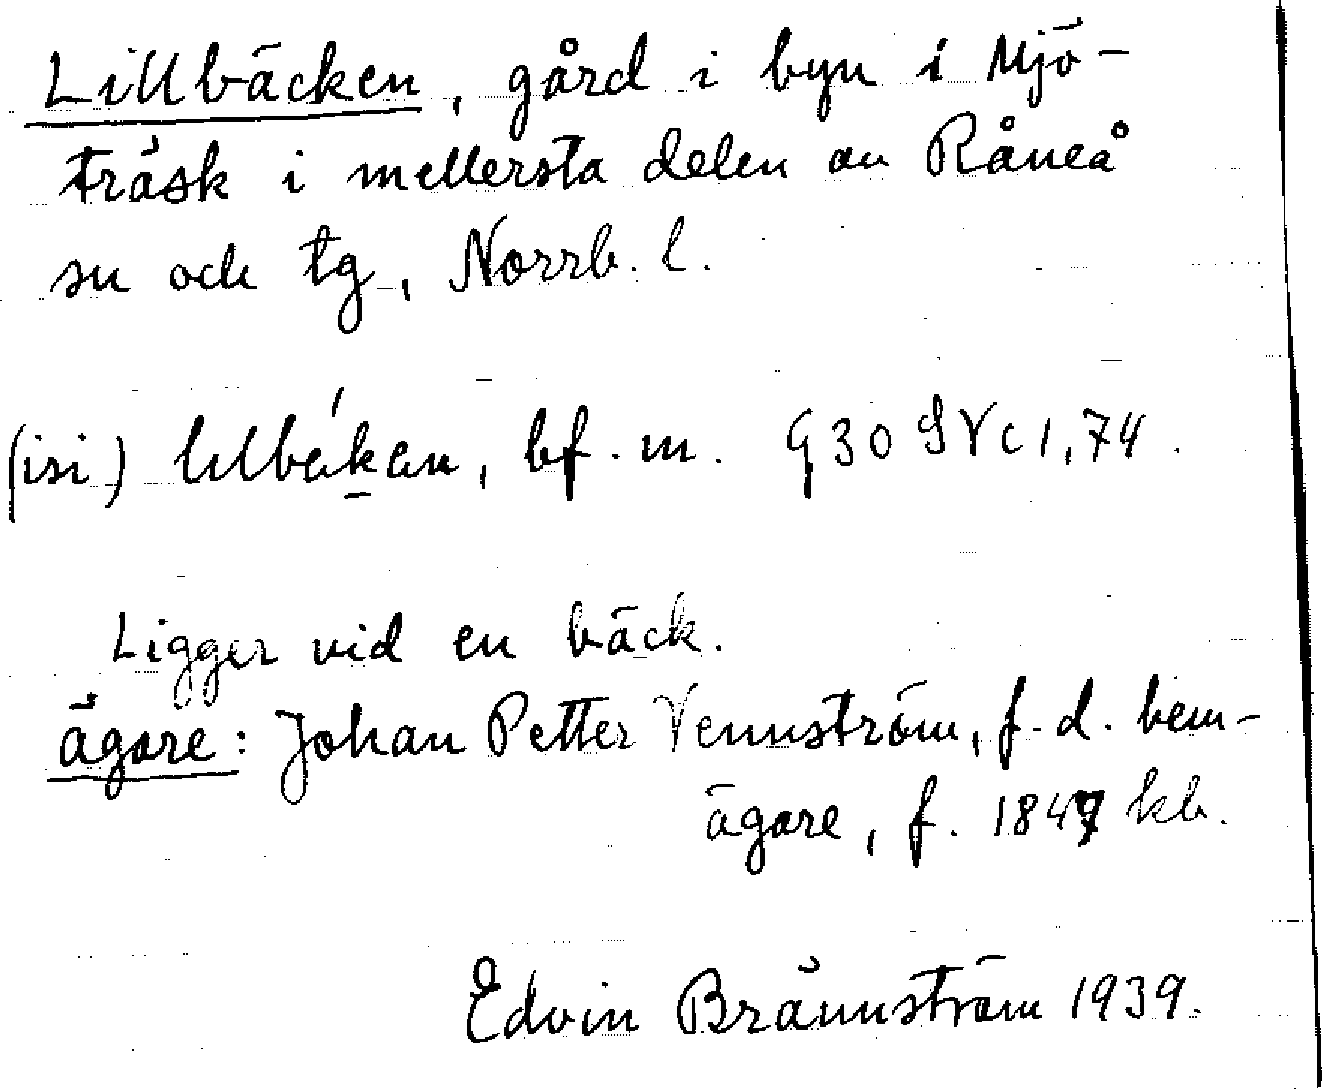 Lillbäcken, gård i byn i Mjö-
träsk i mellersta delen av Råneå
sn och tg, Norrb. l.
(isi) lɩlbekan, bf. m. G30 SV c 1,74.
Ligger vid en bäck.
ägare: Johan Petter Vennström, f.d. hem-
ägare, f. 1847 kb.
Edvin Brännström 1939.